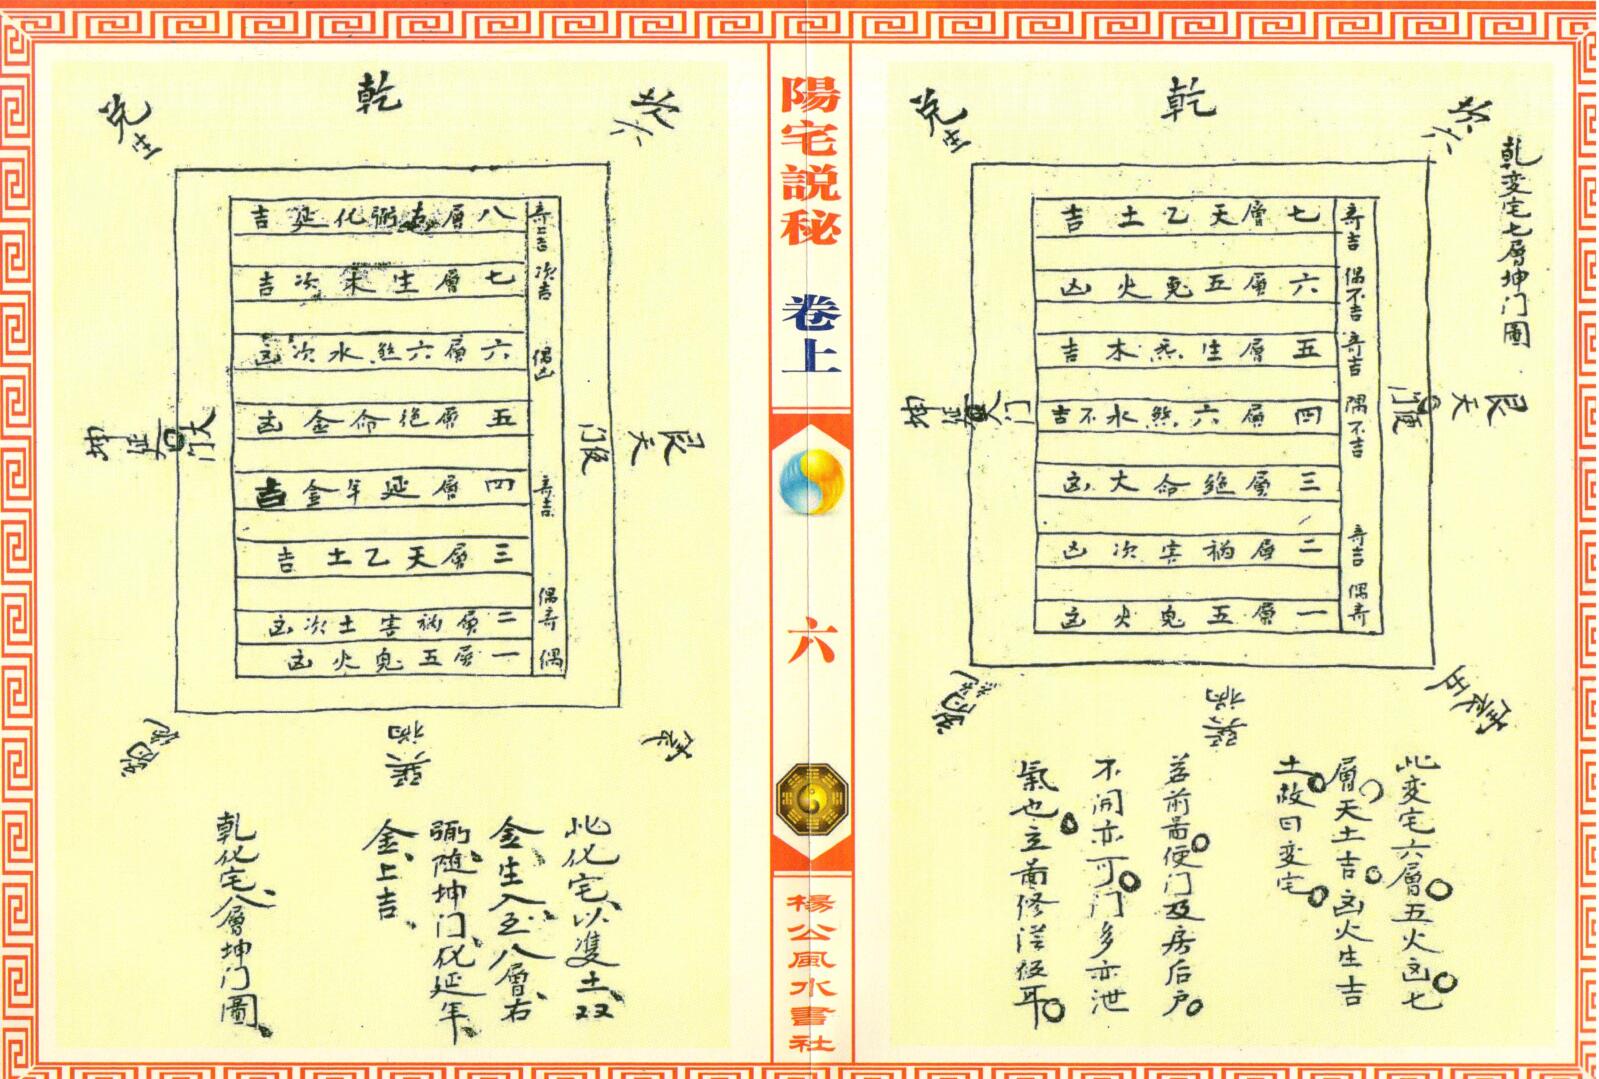 乾変宅七層坤门圖
乾
兌
坎六
七層天乙土吉
六層五鬼火凶
五層生炁木吉
四層六煞水不吉
三層絕命大凶
二層禍害次凶
一層五鬼火凶
奇吉
偶不吉
奇吉
隅不吉
奇吉
偶奇
艮天
便门
坤
大门
巽禍
此変宅六層五火凶七
層天土吉凶火生吉
土故曰変宅
若前面便门及房后户
不開亦可门多亦泄
氣也立前修
陽宅説秘
卷上
六
楊公風水書社
乾
兌
坎六
八層右弼化延吉
七層生末次吉
六層六煞水次凶
五層絕命金凶
四層延年金吉
三層天乙土吉
二層禍害土次凶
一層五鬼火凶
奇吉
次吉
偶凶
奇吉
偶奇
偶
艮天
便门
坤
大门
巽禍
此化宅以雙土双
金生入至八層右
弼随坤门化延年
金上吉
乾化宅八層坤门圖